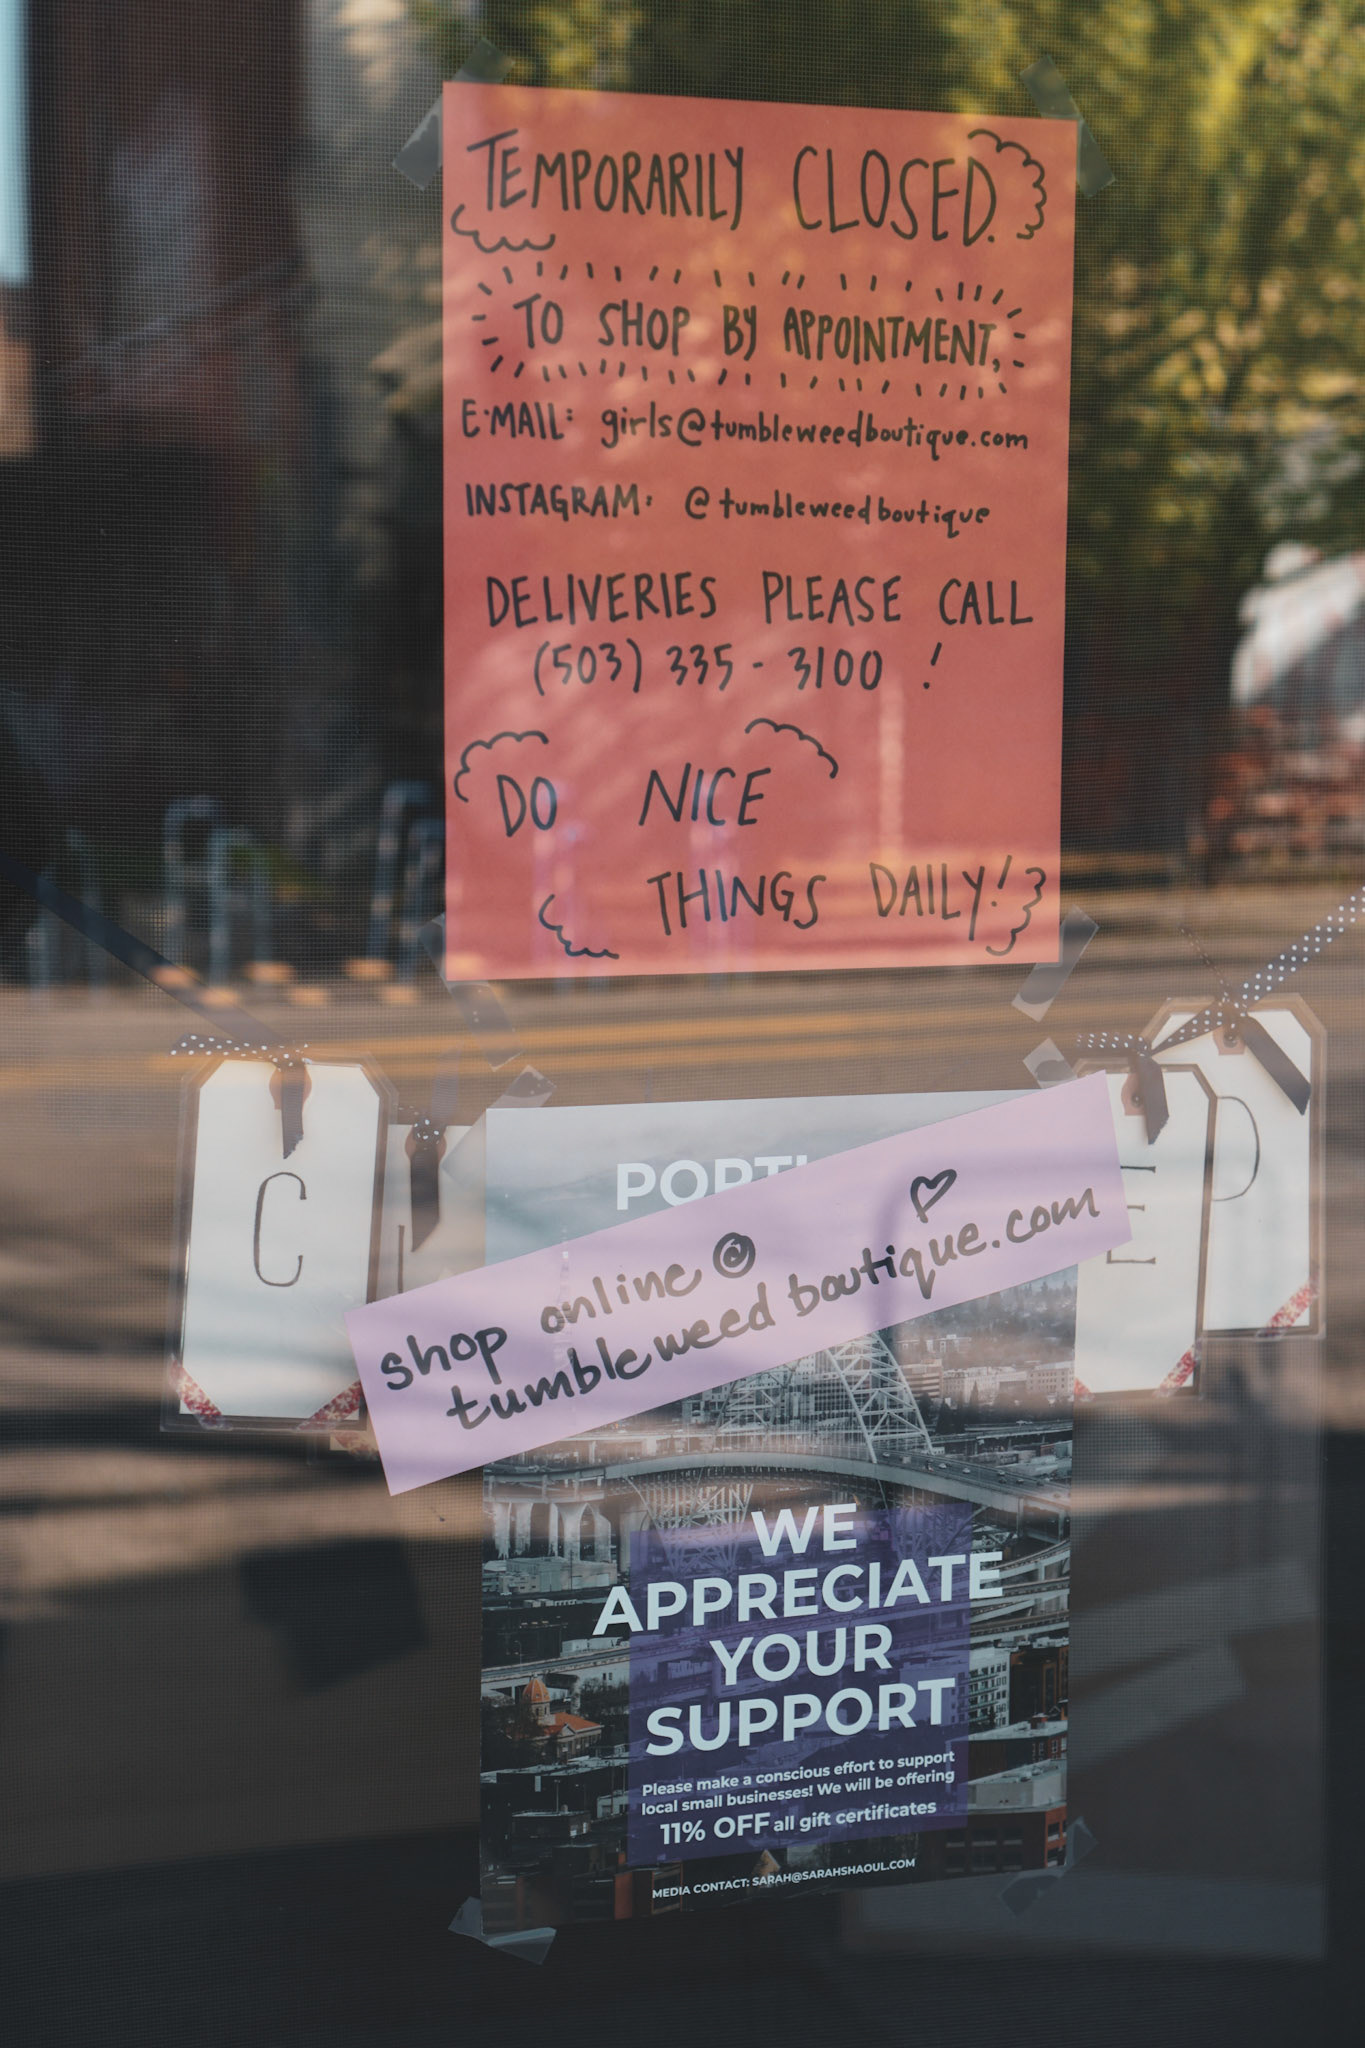 TEMPORARILY CLOSED.
TO SHOP BY APPOINTMENT,
E·MAIL: girls@tumbleweedboutique.com
INSTAGRAM: @tumbleweedboutique
DELIVERIES PLEASE CALL
(503) 335-3100 !
DO NICE
THINGS DAILY!
C
E
D
shop online @
tumbleweedboutique.com
WE
APPRECIATE
YOUR
SUPPORT
Please make a conscious effort to support
local small businesses! We will be offering
11% OFF all gift certificates
MEDIA CONTACT: SARAH@SARAHSHAOUL.COM